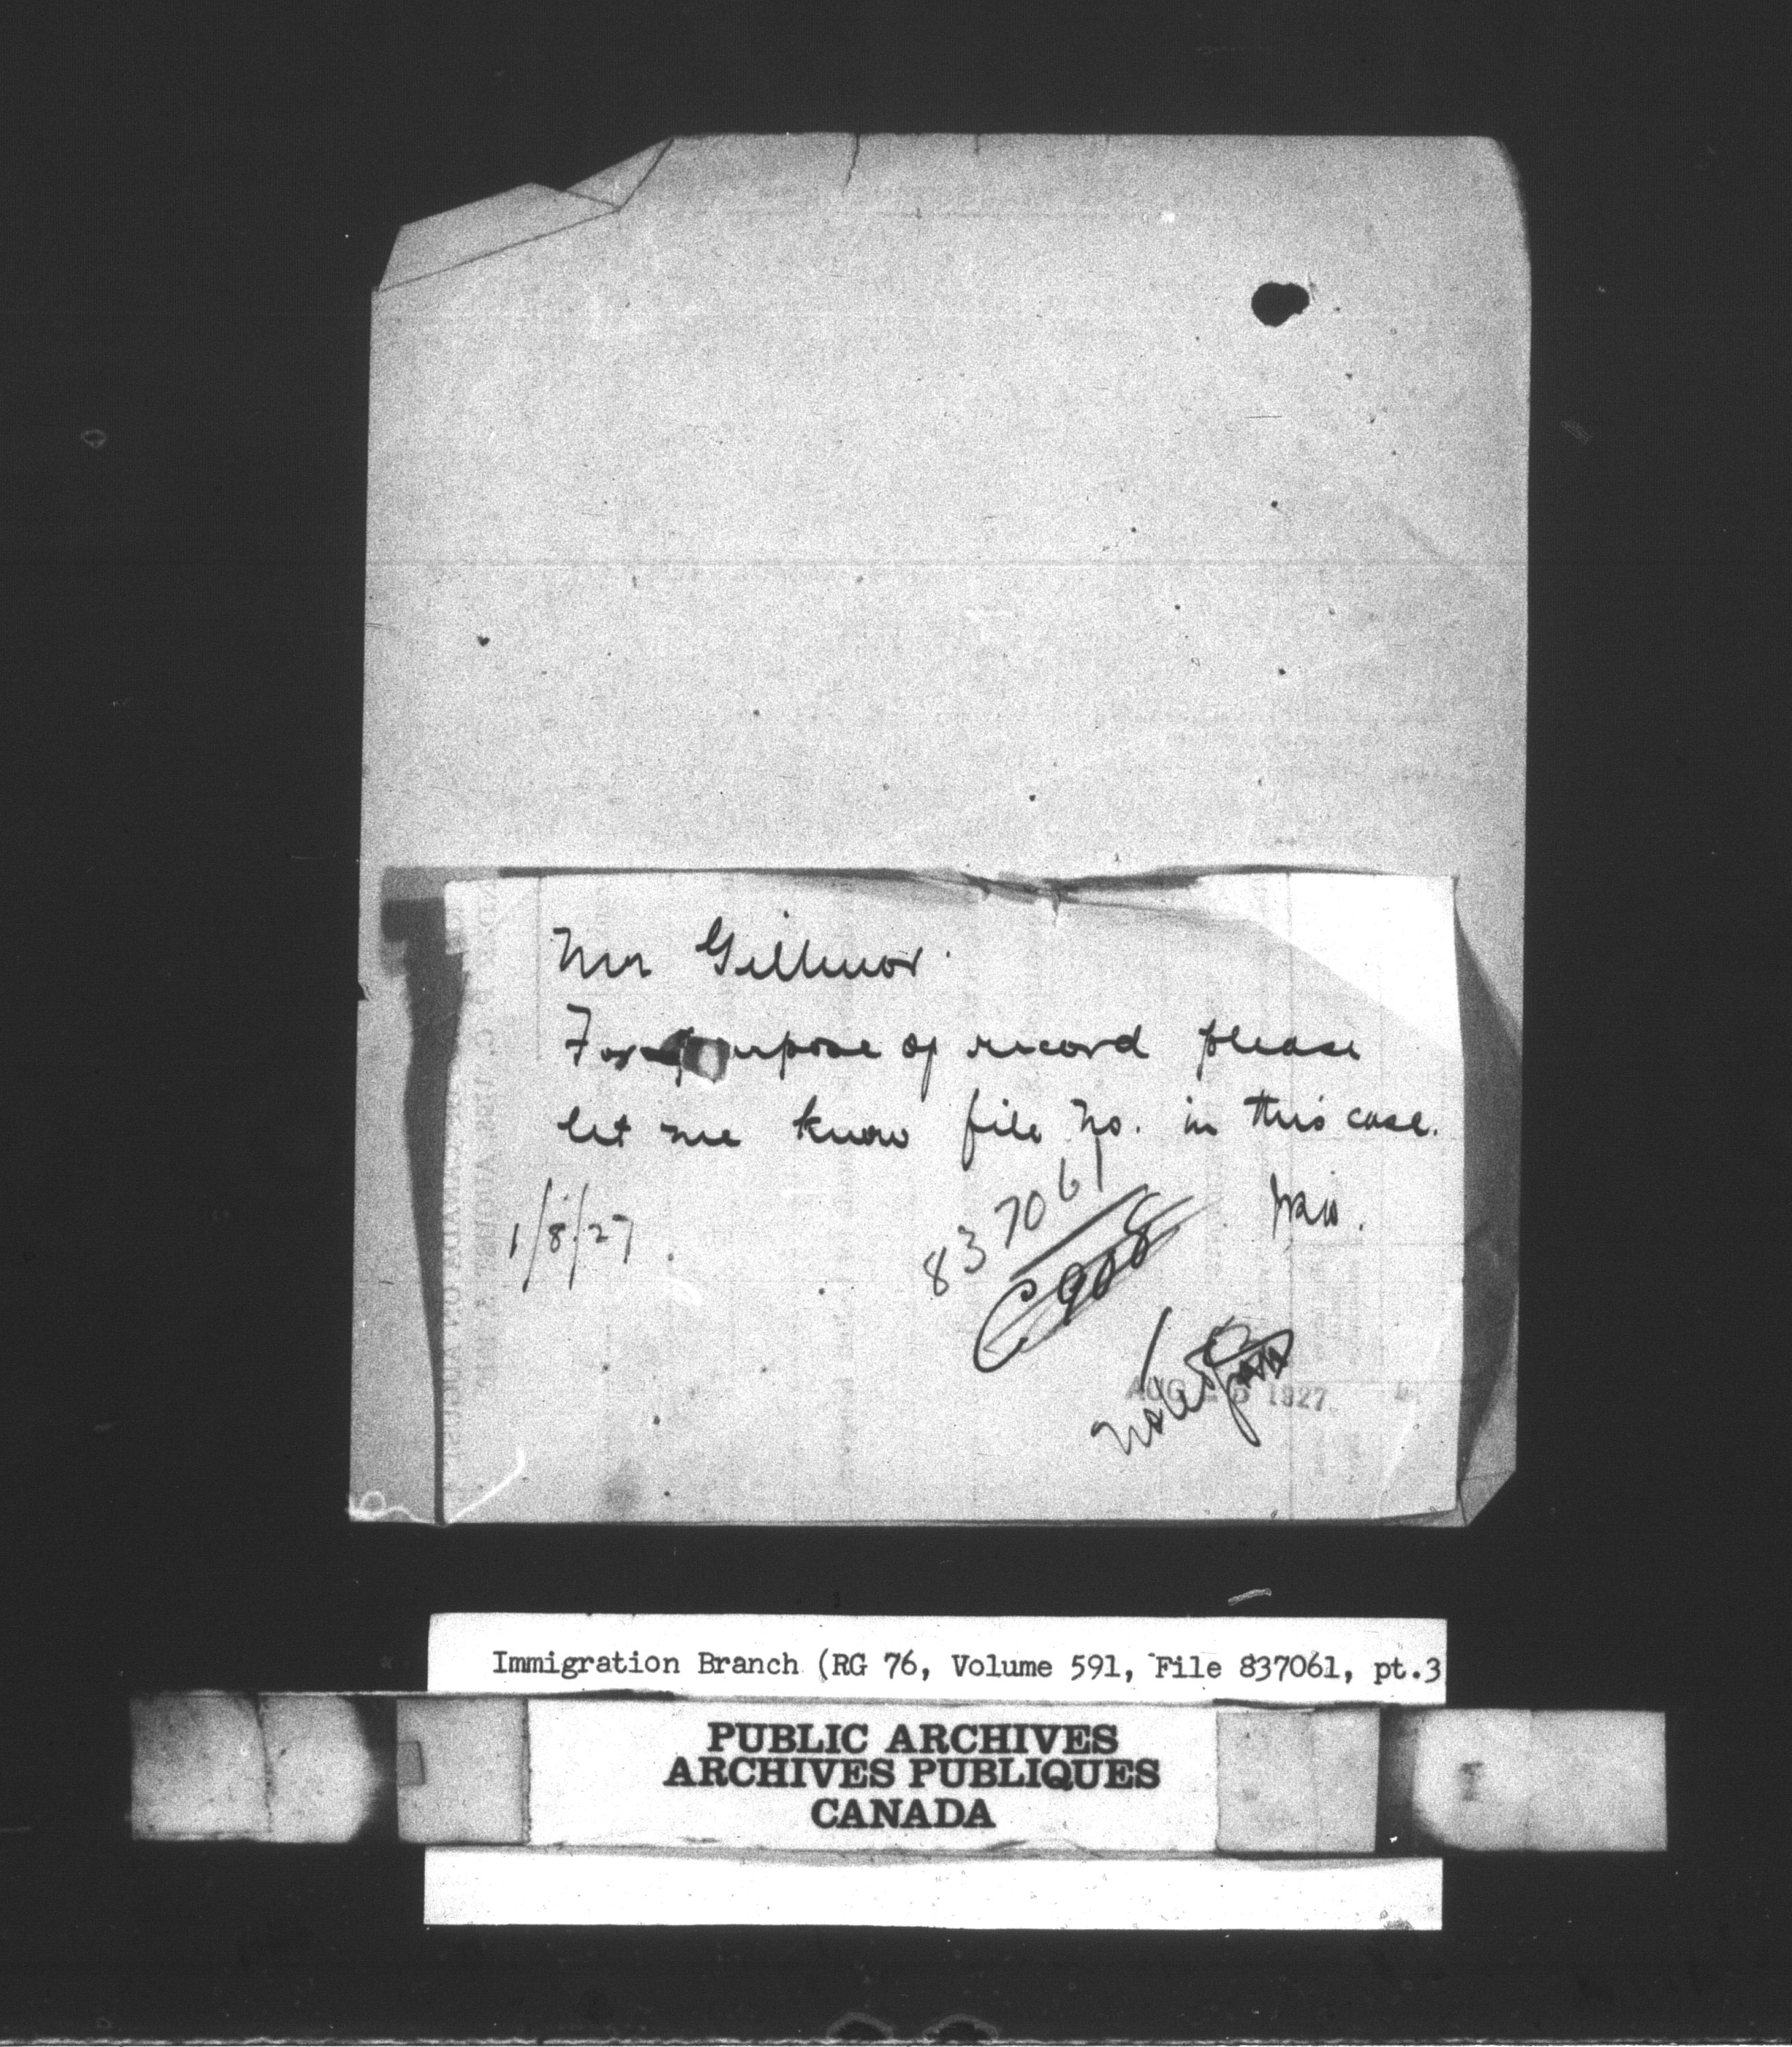 Mr Gillmor.
For purpose of record please
let me know file No. in this case.
1/8/27.
837061
C9008
Noted
AUG 1927.
Immigration Branch (RG 76, Volume 591, File 837061, pt.3
PUBLIC ARCHIVES
ARCHIVES PUBLIQUES
CANADA